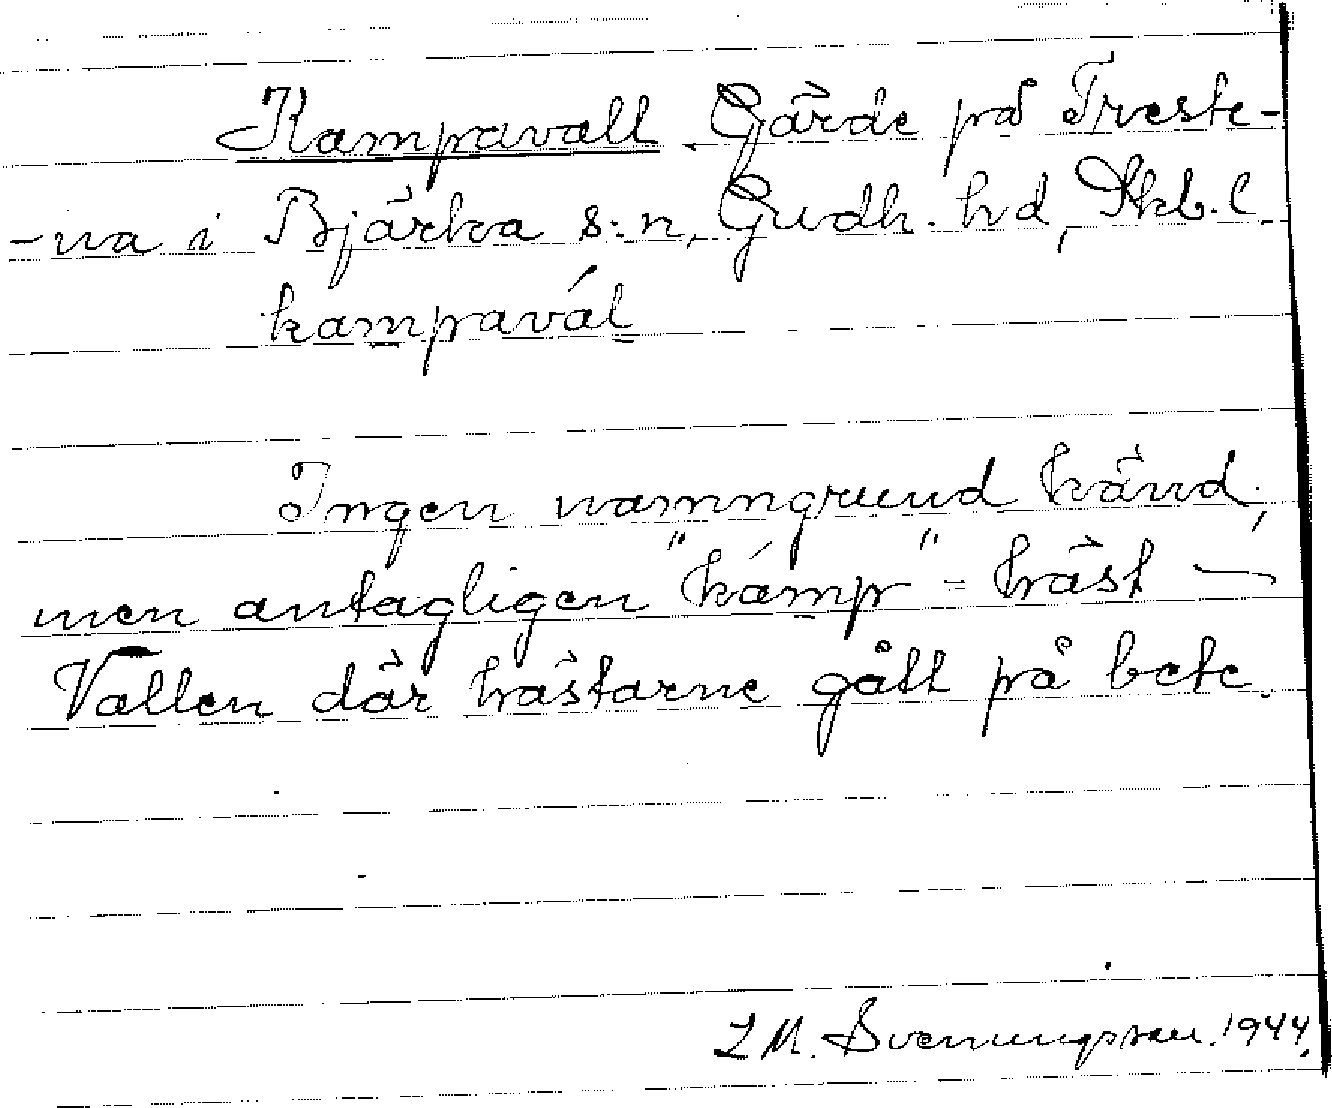 Kampavall. Gärde på Treste-
-na i Bjärka s:n, Gudh. hd, Skb.l.
kampavál
Ingen namngrund känd,
men antagligen "kámp" = häst —
Vallen där hästarne gått på bete.
L M. Svenungsson. 1944.